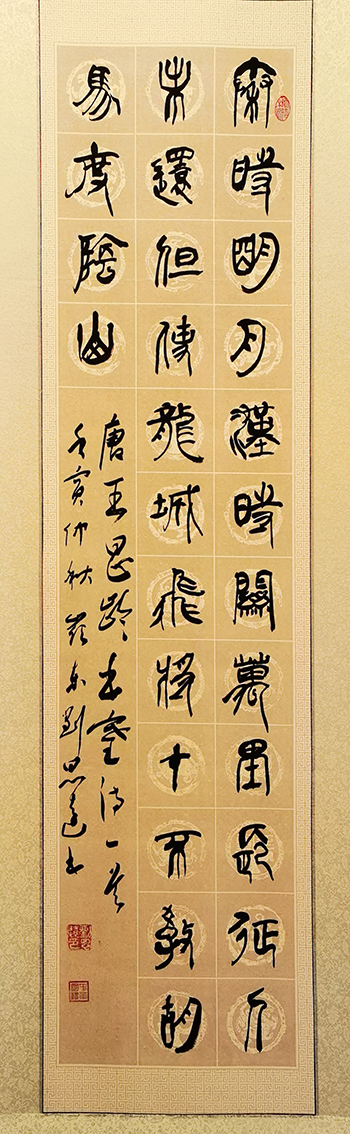 秦時明月漢時關萬里長征人
未還但使龍城飛將在不教胡
馬度陰山
唐王昌齡出塞詩一首
壬寅仲秋 東劉思 書